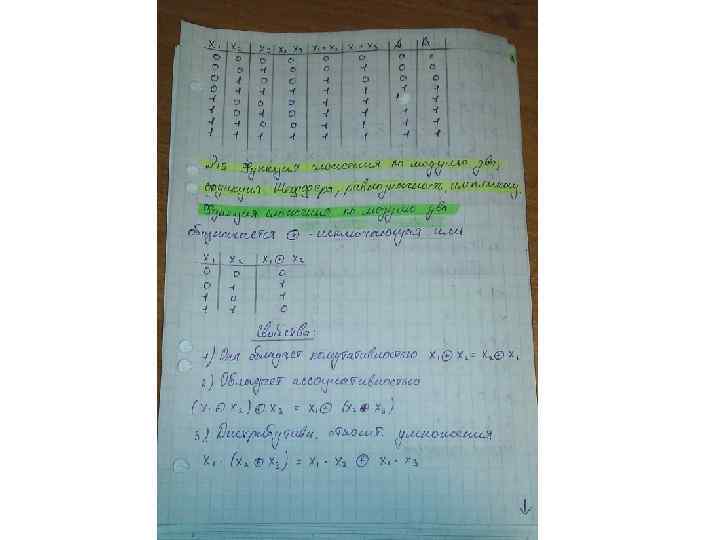 X1 X2 X3 X2·X3 X1+X2 X1+X3 A B
0 0 0 0 0 0 0 0
0 0 1 0 0 1 0 0
0 1 0 0 1 0 0 0
0 1 1 1 1 1 1 1
1 0 0 0 1 1 1 1
1 0 1 0 1 1 1 1
1 1 0 0 1 1 1 1
1 1 1 1 1 1 1 1
Функция сложения по модулю два,
функция Шеффера, равнозначность, импликац.
Функция сложения по модулю два
Обозначается ⊕ - исключающая или
X1 X2 X1 ⊕ X2
0 0 0
0 1 1
1 0 1
1 1 0
Свойства:
1) Она обладает комутативностью X1 ⊕ X2 = X2 ⊕ X1
2) Обладает ассоциативностью
(X1 ⊕ X2) ⊕ X3 = X1 ⊕ (X2 ⊕ X3)
3) Дистрибутивн. относит. умножения
X1 · (X2 ⊕ X3) = X1 · X2 ⊕ X1 · X3